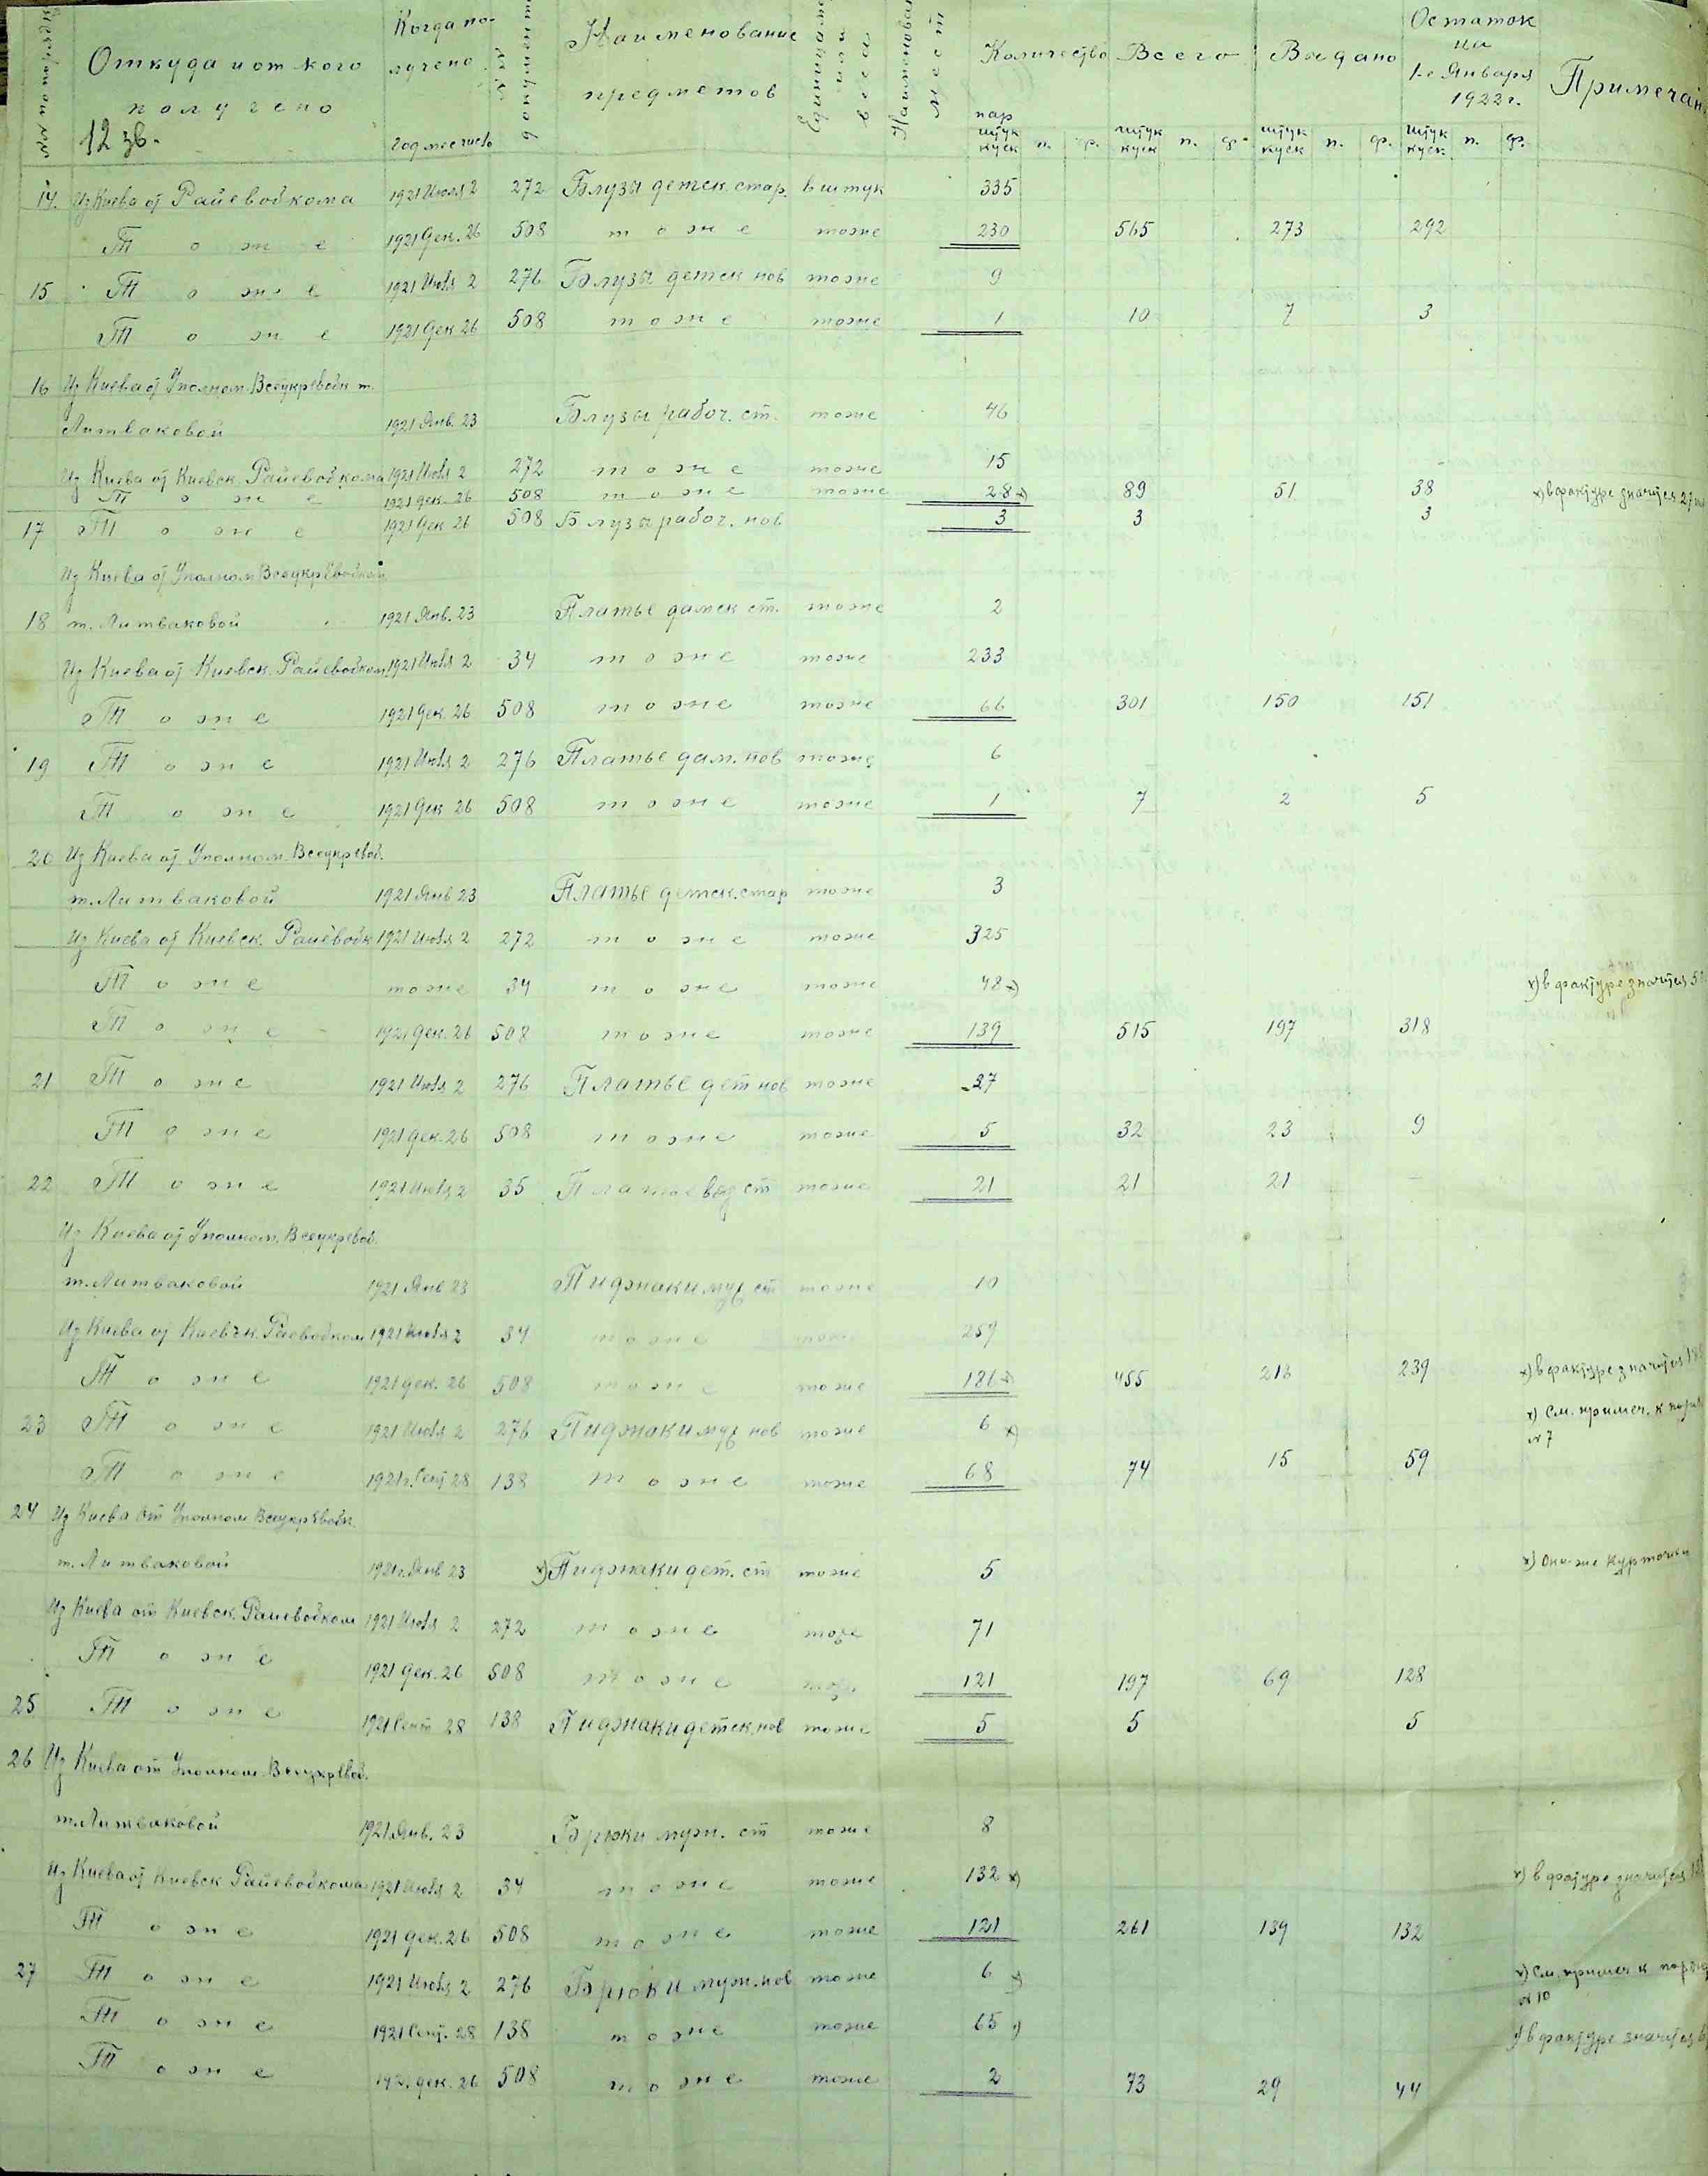 №№ по порядк
Откуда и от кого получено
Когда получено
№№ документ
Наименование предметов
Единица или веса
Наименован мест
Количество
Всего
Выдано
Остаток на 1-е Января 1922 г.
Примечан
12 зв.
год месяц
пар штук куск п. ф. штук куск п. ф. штук куск п. ф. штук куск п. ф.
14. Из Киева от Райевобкома 1921 Июля 2 272 Блузы детск. стар. в штук 335
Тоже 1921 Дек. 26 508 тоже тоже 230 565 273 292
15 Тоже 1921 Июля 2 276 Блузы детск нов тоже 9
Тоже 1921 Дек 26 508 тоже тоже 1 10 7 3
16 Из Киева от Уполном. Всеукревобк т.
Литваковой 1921 Янв. 23 Блузы рабоч. ст. тоже 46
Из Киева от Киевск. Райевобкома 1921 Июля 2 272 тоже тоже 15
Тоже 1921 дек. 26 508 тоже тоже 28 х) 89 51 38 х) в фактуре значится 27
17 Тоже 1921 Дек 26 508 Блузы рабоч. нов 3 3 3
Из Киева от Уполном Всеукревобком
18 т. Литваковой 1921 Янв. 23 Платье дамск ст. тоже 2
Из Киева от Киевск. Райевобком 1921 Июля 2 34 тоже тоже 233
Тоже 1921 Дек. 26 508 тоже тоже 66 301 150 151
19 Тоже 1921 Июля 2 276 Платье дам. нов тоже 6
Тоже 1921 Дек 26 508 тоже тоже 1 7 2 5
20 Из Киева от Уполном. Всеукревоб.
т. Литваковой 1921 Янв 23 Платье детск. стар тоже 3
Из Киева от Киевск. Райевобк 1921 Июля 2 272 тоже тоже 325
Тоже тоже 34 тоже тоже 48 х) х) в фактуре значится
Тоже 1921 Дек. 26 508 тоже тоже 139 515 197 318
21 Тоже 1921 Июля 2 276 Платье дет нов тоже 27
Тоже 1921 дек. 26 508 тоже тоже 5 32 23 9
22 Тоже 1921 Июля 2 35 Платье ст тоже 21 21 21 —
Из Киева от Уполном. Всеукревоб.
т. Литваковой 1921 Янв 23 Пиджаки муж ст тоже 10
Из Киева от Киевск. Раевобком 1921 Июля 2 34 тоже тоже 259
Тоже 1921 дек. 26 508 тоже тоже 186 х) 455 216 239 х) в фактуре значится
23 Тоже 1921 Июля 2 276 Пиджаки муж нов тоже 6 х) х) См. примеч. к поряд № 7
Тоже 1921 г. Сент 28 138 тоже тоже 68 74 15 59
24 Из Киева от Уполном Всеукревобк.
т. Литваковой 1921 г. Янв 23 х) Пиджаки дет. ст тоже 5 х) Они-же курточки
Из Киева от Киевск. Райевобком 1921 Июля 2 272 тоже тоже 71
Тоже 1921 дек. 26 508 тоже тоже 121 197 69 128
25 Тоже 1921 Сент 28 138 Пиджаки детск. нов тоже 5 5 5
26 Из Киева от Уполном. Всеукревоб.
т. Литваковой 1921 Янв. 23 Брюки муж. ст тоже 8
Из Киева от Киевск Райевобкома 1921 Июля 2 34 тоже тоже 132 х) х) в фатуре значится
Тоже 1921 дек. 26 508 тоже тоже 121 261 139 132
27 Тоже 1921 Июля 2 276 Брюки муж. нов тоже 6 х) х) См. примеч к поряд № 10
Тоже 1921 Сент. 28 138 тоже тоже 65 у) у) в фактуре значится
Тоже 192. дек. 26 508 тоже тоже 2 73 29 44